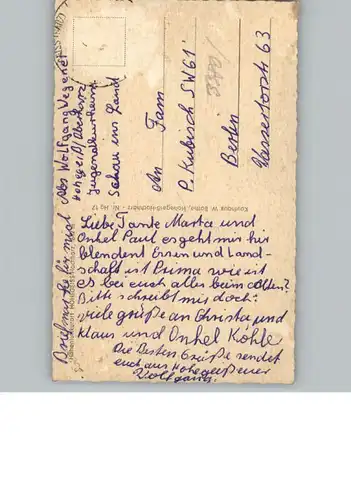 Abs Wolfgang Wegener
Hohegeiß/Oberharz/
Jugendkurheim
Schau ins Land
An Fam
P. Kubisch SW61
Berlin
Wassertorstr 63
Briefmarke für mich
Liebe Tante Marta und
Onkel Paul es geht mir hir
blendent Essen und Land-
schaft ist Prima wie ist
es bei euch alles beim alten?
Bitte schreibt mir doch.
viele grüße an Christa und
Klaus und Onkel Köhle
Die Besten Grüße sendet
euch aus Hohegeiß euer
Wolfgang